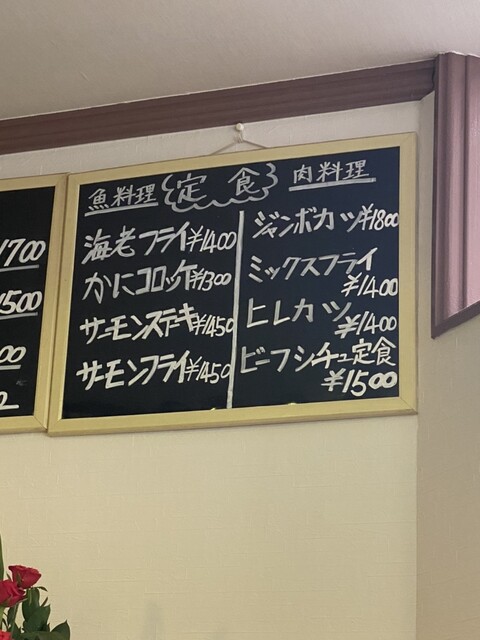 1700
1500
00
魚料理
定食
肉料理
海老フライ¥1400
かにコロッケ¥1300
サーモンステーキ¥1450
サーモンフライ¥1450
ジャンボカツ¥1800
ミックスフライ
¥1400
ヒレカツ
¥1400
ビーフシチュー定食
¥1500